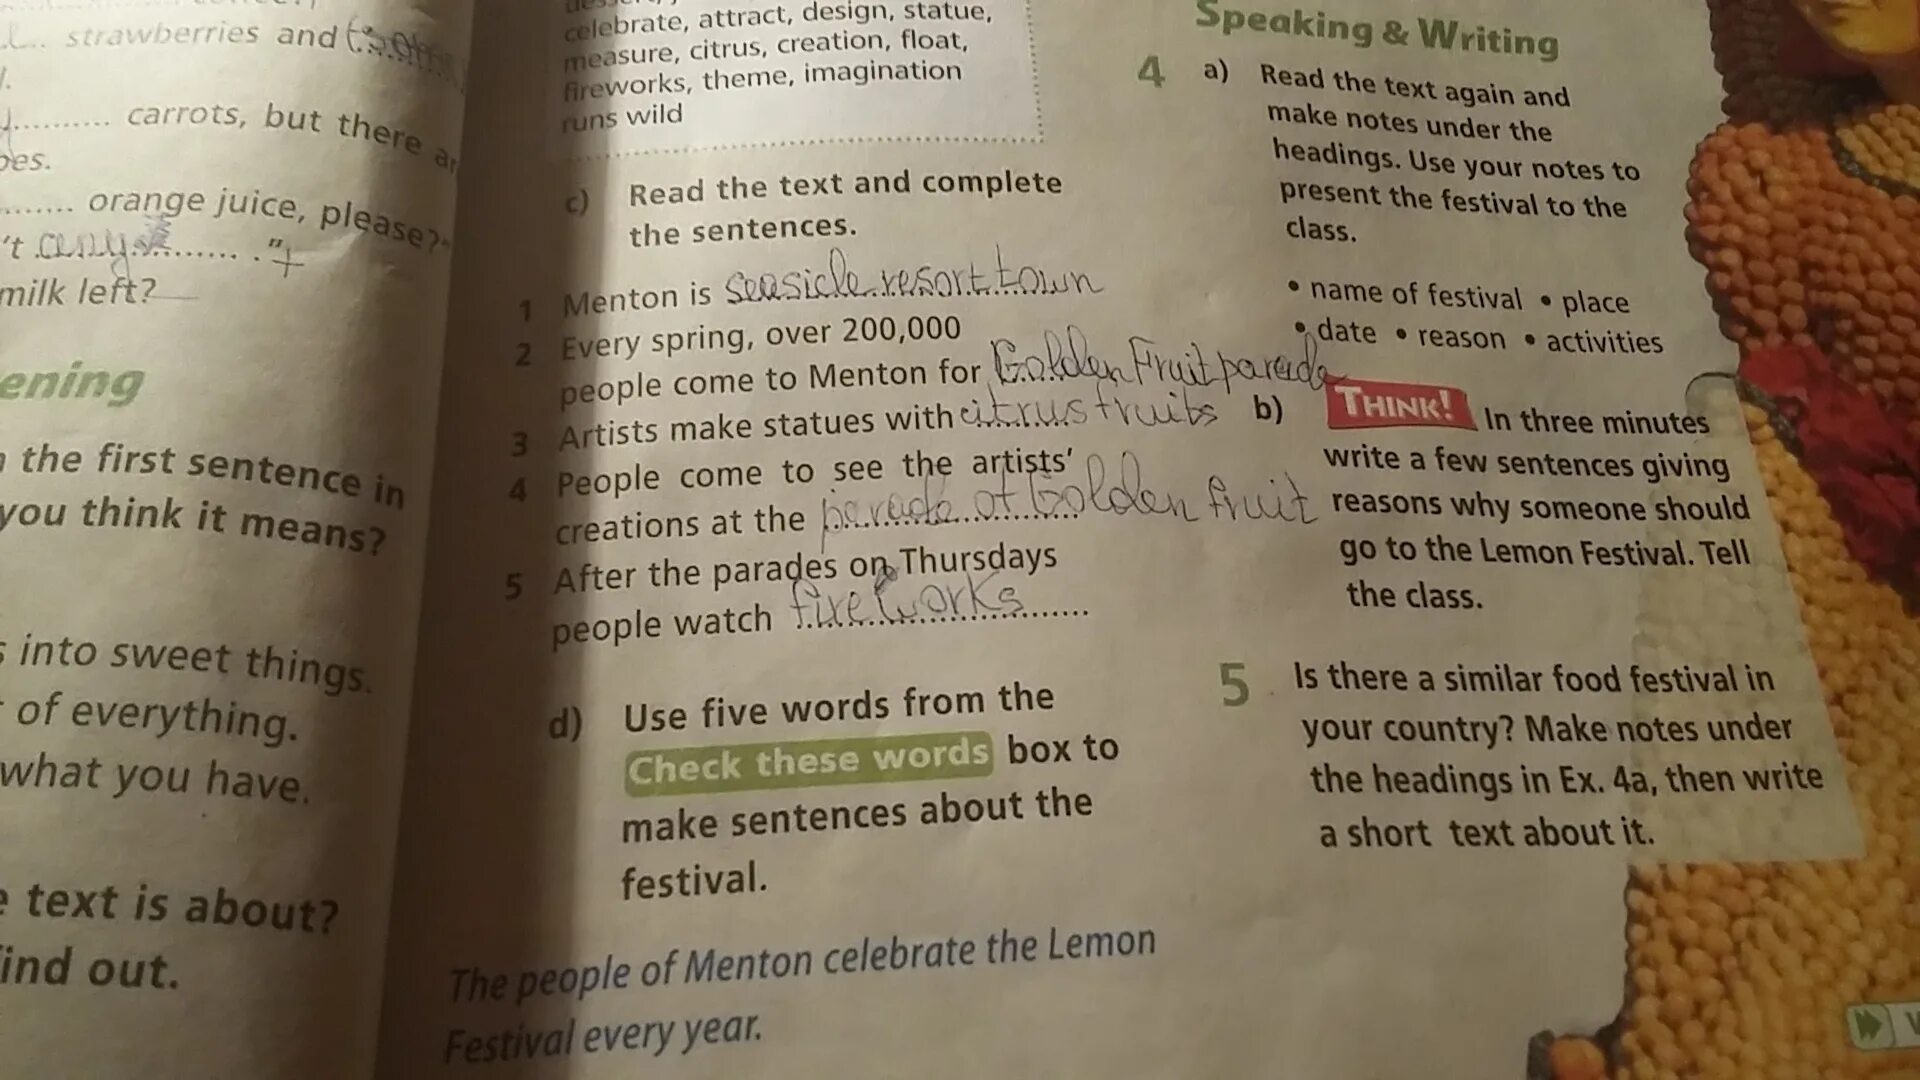 strawberries and
carrots, but there
orange juice, please?"
't any ."
milk left?
ening
the first sentence in
you think it means?
into sweet things.
of everything.
what you have.
text is about?
find out.
celebrate, attract, design, statue,
measure, citrus, creation, float,
fireworks, theme, imagination
runs wild
c) Read the text and complete
the sentences.
1 Menton is seaside resort town
2 Every spring, over 200,000
people come to Menton for Golden Fruit parade
3 Artists make statues with citrus fruits
4 People come to see the artists'
creations at the parade of Golden fruit
5 After the parades on Thursdays
people watch fireworks
d) Use five words from the
Check these words box to
make sentences about the
festival.
The people of Menton celebrate the Lemon
Festival every year.
Speaking & Writing
4 a) Read the text again and
make notes under the
headings. Use your notes to
present the festival to the
class.
• name of festival • place
• date • reason • activities
b) THINK! In three minutes
write a few sentences giving
reasons why someone should
go to the Lemon Festival. Tell
the class.
5 Is there a similar food festival in
your country? Make notes under
the headings in Ex. 4a, then write
a short text about it.